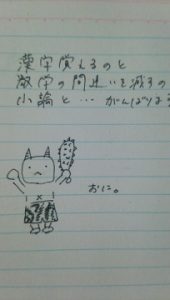 漢字覚えるのと
数学の間違いを減すの
小論と…がんばりま
おに。